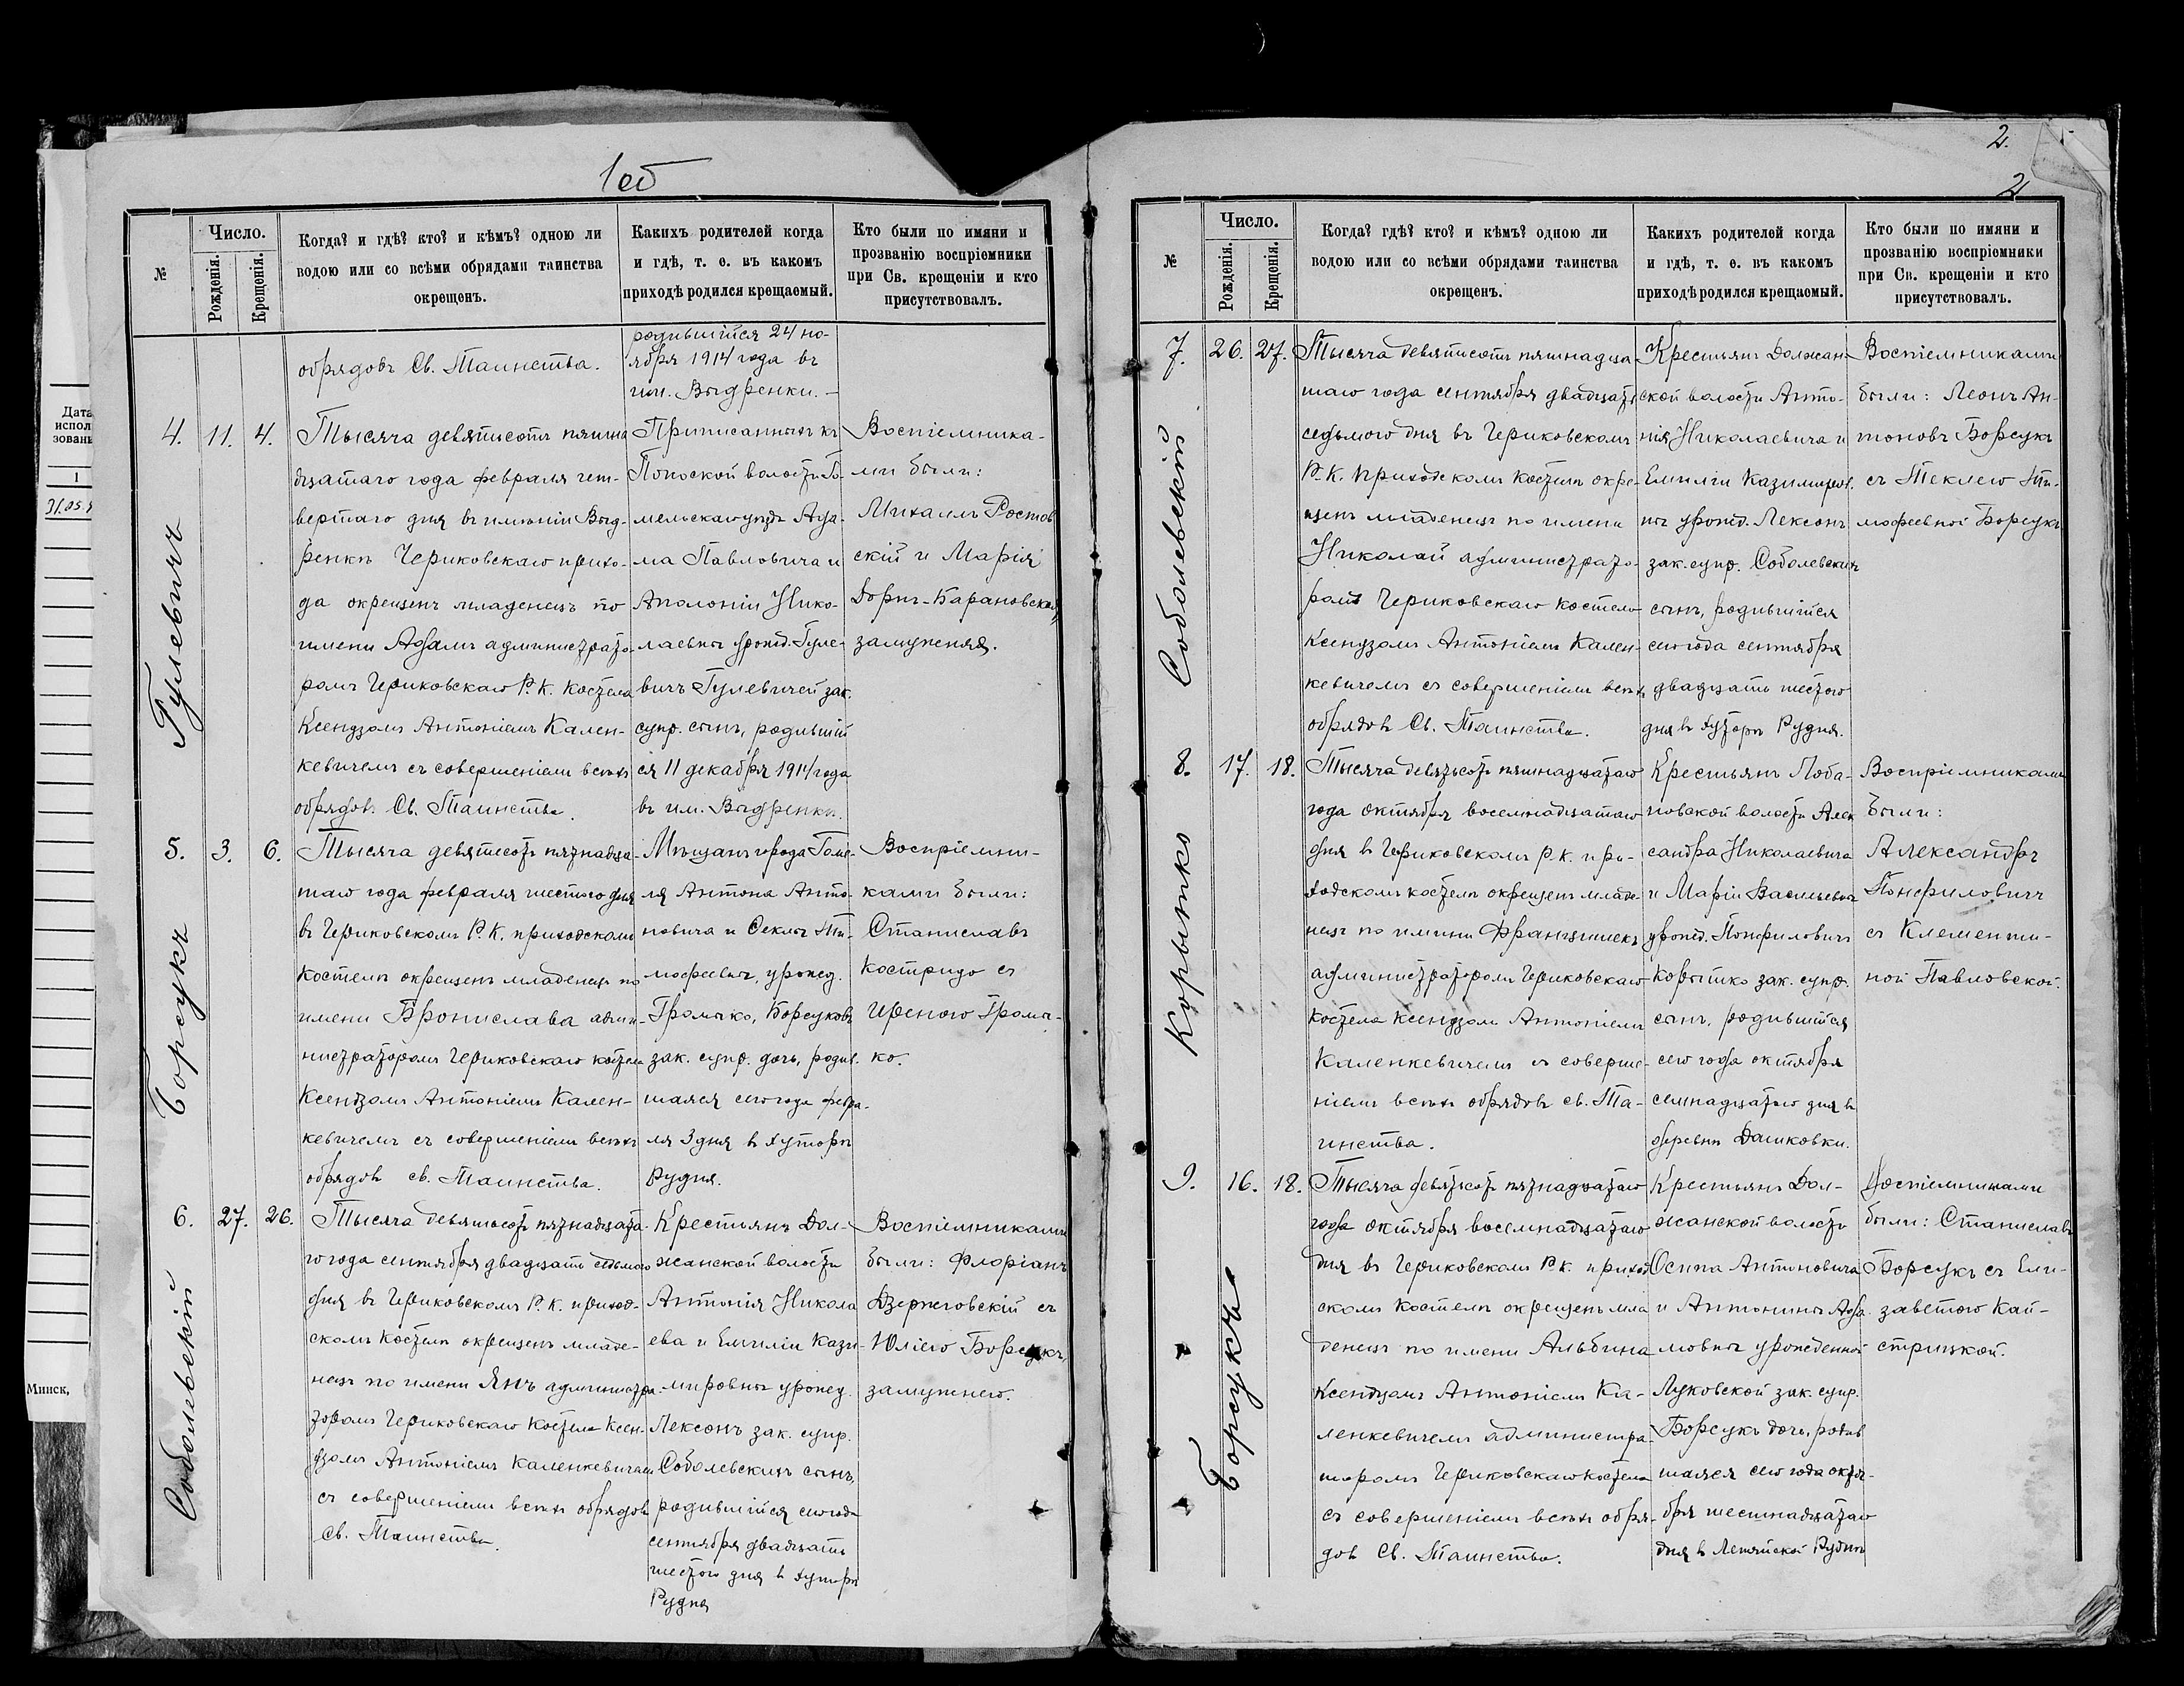 1об
№
Число.
Рожденія.
Крещенія.
Когда? и гдѣ? кто? и кѣмъ? одною ли
водою или со всѣми обрядами таинства
окрещенъ.
Какихъ родителей когда
и гдѣ, т. е. въ какомъ
приходѣ родился крещаемый.
Кто были по имяни и
прозванію воспріемники
при Св. крещеніи и кто
присутствовалъ.
обрядовъ Св. Таинства.
родившійся 24 но-
ября 1914 года въ
им. Выдренки. —
Гулевичъ
4. 11. 4.
Тысяча девятьсотъ пятна
дцатаго года февраля чет-
вертаго дня въ имѣніи Выд-
ренкѣ Чериковскаго прихо-
да окрещенъ младенецъ по
имени Адамъ администрато-
ромъ Чериковскаго Р. К. костела
Ксендзомъ Антоніемъ Кален-
кевичемъ съ совершеніемъ всѣхъ
обрядовъ Св. Таинства.
Приписанныхъ къ
волости Го-
мельскаго уѣзда Ада-
ма Павловича и
Аполоніи Нико-
лаевны урожд. Гуле-
вичъ Гулевичей зак.
супр. сынъ, родившій
ся 11 декабря 1914 года
въ им. Выдренки.
Воспіемника-
ми были:
Михаилъ Ростов
скій и Марія
Дорнъ-Барановская,
замужняя.
Борсукъ
5. 3. 6.
Тысяча девятьсотъ пятнадца-
таго года февраля шестого дня
въ Чериковскомъ Р. К. приходскомъ
костелѣ окрещенъ младенецъ по
имени Бронислава адми-
нистраторомъ Чериковскаго костела
Ксендзомъ Антоніемъ Кален-
кевичемъ съ совершеніемъ всѣхъ
обрядовъ св. Таинства.
Мѣщанъ города Гоме-
ля Антона Анто-
новича и Феклы Ти-
мофеевны, урожд.
Громыко, Борсуковъ
зак. супр. дочь, родив.
шаяся сего года февра-
ля 3 дня въ хуторѣ
Рудня.
Воспріемни-
ками были:
Станиславъ
Костридо съ
Иреною Громы-
ко.
Соболевскій
6. 27. 26.
Тысяча девятьсотъ пятнадцата-
го года сентября двадцать седьмаго
дня въ Чериковскомъ Р. К. приход-
скомъ костелѣ окрещенъ младе-
нецъ по имени Янъ администра-
торомъ Чериковскаго костела Ксен-
дзомъ Антоніемъ Каленкевичемъ
съ совершеніемъ всѣхъ обрядовъ
Св. Таинства.
Крестьянъ Дол-
жанской волости
Антонія Никола
ева и Емиліи Кази-
мировны урожд.
Лексонъ зак. супр.
Соболевскихъ сынъ,
родившійся сего года
сентября двадцать
шестого дня въ хуторѣ
Рудня
Воспіемниками
были: Флоріанъ
съ
Юліею Борсукъ,
замужнею.
2.
2
№
Число.
Рожденія.
Крещенія.
Когда? гдѣ? кто? и кѣмъ? одною ли
водою или со всѣми обрядами таинства
окрещенъ.
Какихъ родителей когда
и гдѣ, т. е. въ какомъ
приходѣ родился крещаемый.
Кто были по имяни и
прозванію воспріемники
при Св. крещеніи и кто
присутствовалъ.
Соболевскій
7. 26. 27.
Тысяча девятьсотъ пятнадца-
таго года сентября двадцать
седьмого дня въ Чериковскомъ
Р. К. приходскомъ костелѣ окре-
щенъ младенецъ по имени
Николай администрато-
ромъ Чериковскаго костела
Ксендзомъ Антоніемъ Кален-
кевичемъ съ совершеніемъ всѣхъ
обрядовъ Св. Таинства.
Крестьянъ Должан-
ской волости Анто-
нія Николаевича и
Емиліи Казимиров.
ны урожд. Лексонъ
зак. супр. Соболевскихъ
сынъ, родившійся
сего года сентября
двадцать шестого
дня въ хуторѣ Рудня.
Воспіемниками
были: Леонъ Ан-
тоновъ Борсукъ
съ Теклею Ти-
мофеевной Борсукъ
Корытко
8. 17. 18.
Тысяча девятьсотъ пятнадцатаго
года октября восемнадцатаго
дня въ Чериковскомъ Р. К. при-
ходскомъ костелѣ окрещенъ младе-
нецъ по имени Францишекъ
администраторомъ Чериковскаго
костела Ксендзомъ Антоніемъ
Каленкевичемъ съ соверше-
ніемъ всѣхъ обрядовъ св. Та-
инства.
Крестьянъ Лоба-
новской волости Алек
сандра Николаевича
и Маріи Васильевны
урожд. Панфиловичъ
Корытко зак. супр.
сынъ, родившійся
сего года октября
семнадцатаго дня въ
деревнѣ Дашковки.
Воспріемниками
были:
Александръ
Понфиловичъ
съ Клементи-
ной Павловской.
Борсукъ
9. 16. 18.
Тысяча девятьсотъ пятнадцатаго
года октября восемнадцатаго
дня въ Чериковскомъ Р. К. приход
скомъ костелѣ окрещенъ мла
денецъ по имени Альбина
Ксендзомъ Антоніемъ Ка-
ленкевичемъ администра-
торомъ Чериковскаго костела
съ совершеніемъ всѣхъ обря-
довъ Св. Таинства.
Крестьянъ Дол-
жанской волости
Осипа Антоновича
и Антонины Ада
мовны урожденной
Луковской зак. супр.
Борсукъ дочь, родив
шаяся сего года октя-
бря шестнадцатаго
дня въ Рудни
Воспіемниками
были: Станиславъ
Борсукъ съ Ели-
заветою Кай-
стрицкой.
Дата
испол
зовань
1
31.05.9
Минск,